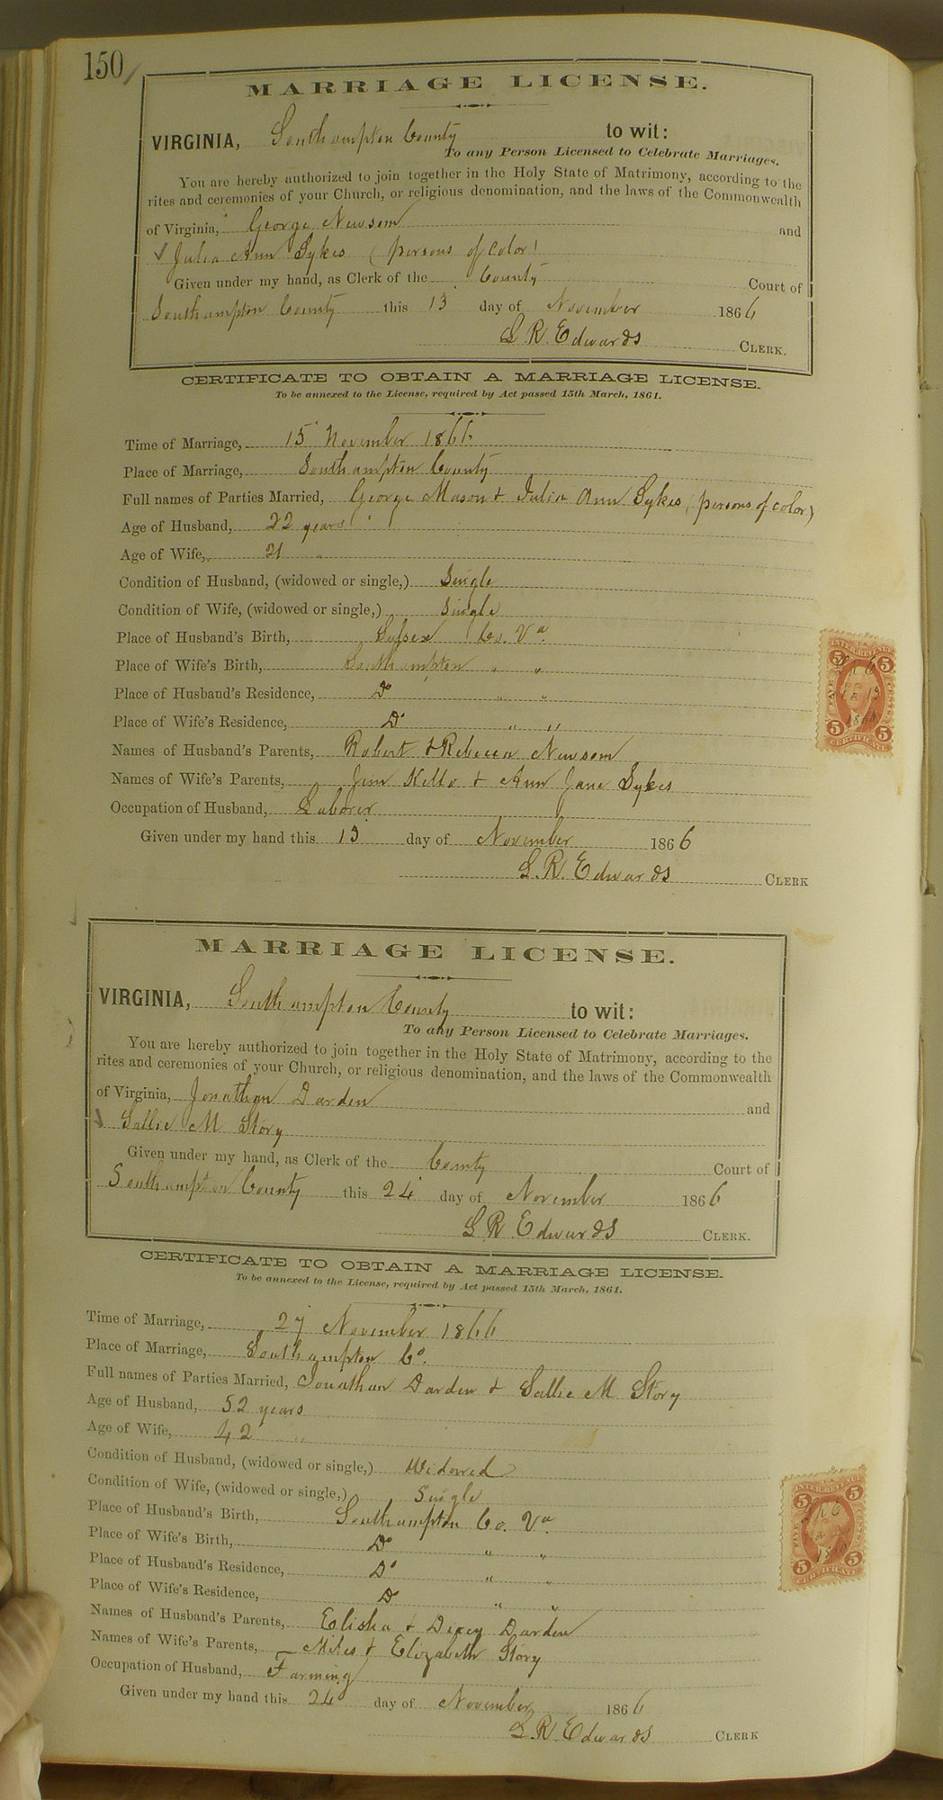 150
MARRIAGE LICENSE.
VIRGINIA, Southampton County to wit:
To any Person Licensed to Celebrate Marriages.
You are hereby authorized to join together in the Holy State of Matrimony, according to the
rites and ceremonies of your Church, or religious denomination, and the laws of the Commonwealth
of Virginia, George Newsom and
Julia Ann Sykes (persons of color)
Given under my hand, as Clerk of the County Court of
Southampton County this 13 day of November 1866
L. R. Edwards CLERK.
CERTIFICATE TO OBTAIN A MARRIAGE LICENSE.
To be annexed to the License, required by Act passed 15th March, 1861.
Time of Marriage, 15 November 1866
Place of Marriage, Southampton County
Full names of Parties Married, George Mason & Julia Ann Sykes (persons of color)
Age of Husband, 22 years
Age of Wife, 21 "
Condition of Husband, (widowed or single,) Single
Condition of Wife, (widowed or single,) Single
Place of Husband's Birth, Sussex Co. Va
Place of Wife's Birth, Southampton " "
Place of Husband's Residence, Do " "
Place of Wife's Residence, Do " "
Names of Husband's Parents, Robert & Rebecca Newsom
Names of Wife's Parents, Jim Kello & Ann Jane Sykes
Occupation of Husband, Laborer
Given under my hand this 13 day of November 1866
L. R. Edwards CLERK
MARRIAGE LICENSE.
VIRGINIA, Southampton County to wit:
To any Person Licensed to Celebrate Marriages.
You are hereby authorized to join together in the Holy State of Matrimony, according to the
rites and ceremonies of your Church, or religious denomination, and the laws of the Commonwealth
of Virginia, Jonathan Darden and
Sallie M Story
Given under my hand, as Clerk of the County Court of
Southampton County this 24 day of November 1866
L R Edwards CLERK.
CERTIFICATE TO OBTAIN A MARRIAGE LICENSE.
To be annexed to the License, required by Act passed 15th March, 1861.
Time of Marriage, 27 November 1866
Place of Marriage, Southampton Co.
Full names of Parties Married, Jonathan Darden & Sallie M Story
Age of Husband, 52 years
Age of Wife, 42 "
Condition of Husband, (widowed or single,) Widowed
Condition of Wife, (widowed or single,) Single
Place of Husband's Birth, Southampton Co. Va
Place of Wife's Birth, Do " "
Place of Husband's Residence, Do " "
Place of Wife's Residence, Do " "
Names of Husband's Parents, Elisha & Dixey Darden
Names of Wife's Parents, Miles & Elizabeth Story
Occupation of Husband, Farming
Given under my hand this 24 day of November 1866
L. R. Edwards CLERK